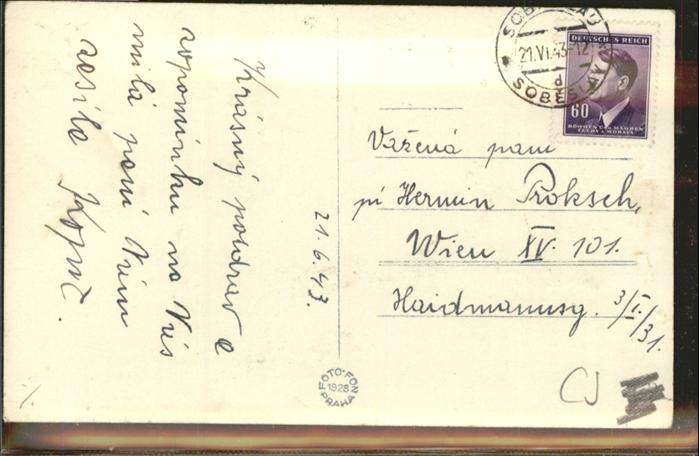 Krásný pozdrav a
vzpomínku na Vás
milá paní Vám
zasílá
21.6.43.
SOBĚSLAV
21.VI.43-12
d
SOBĚSLAU
DEUTSCHES REICH
60
BÖHMEN UND MÄHREN
ČECHY A MORAVA
Vážená paní
pí Hermin Proksch,
Wien XV. 101.
Haidmannsg. 3/I./31.
FOTO-FON
1928
PRAHA
CJ